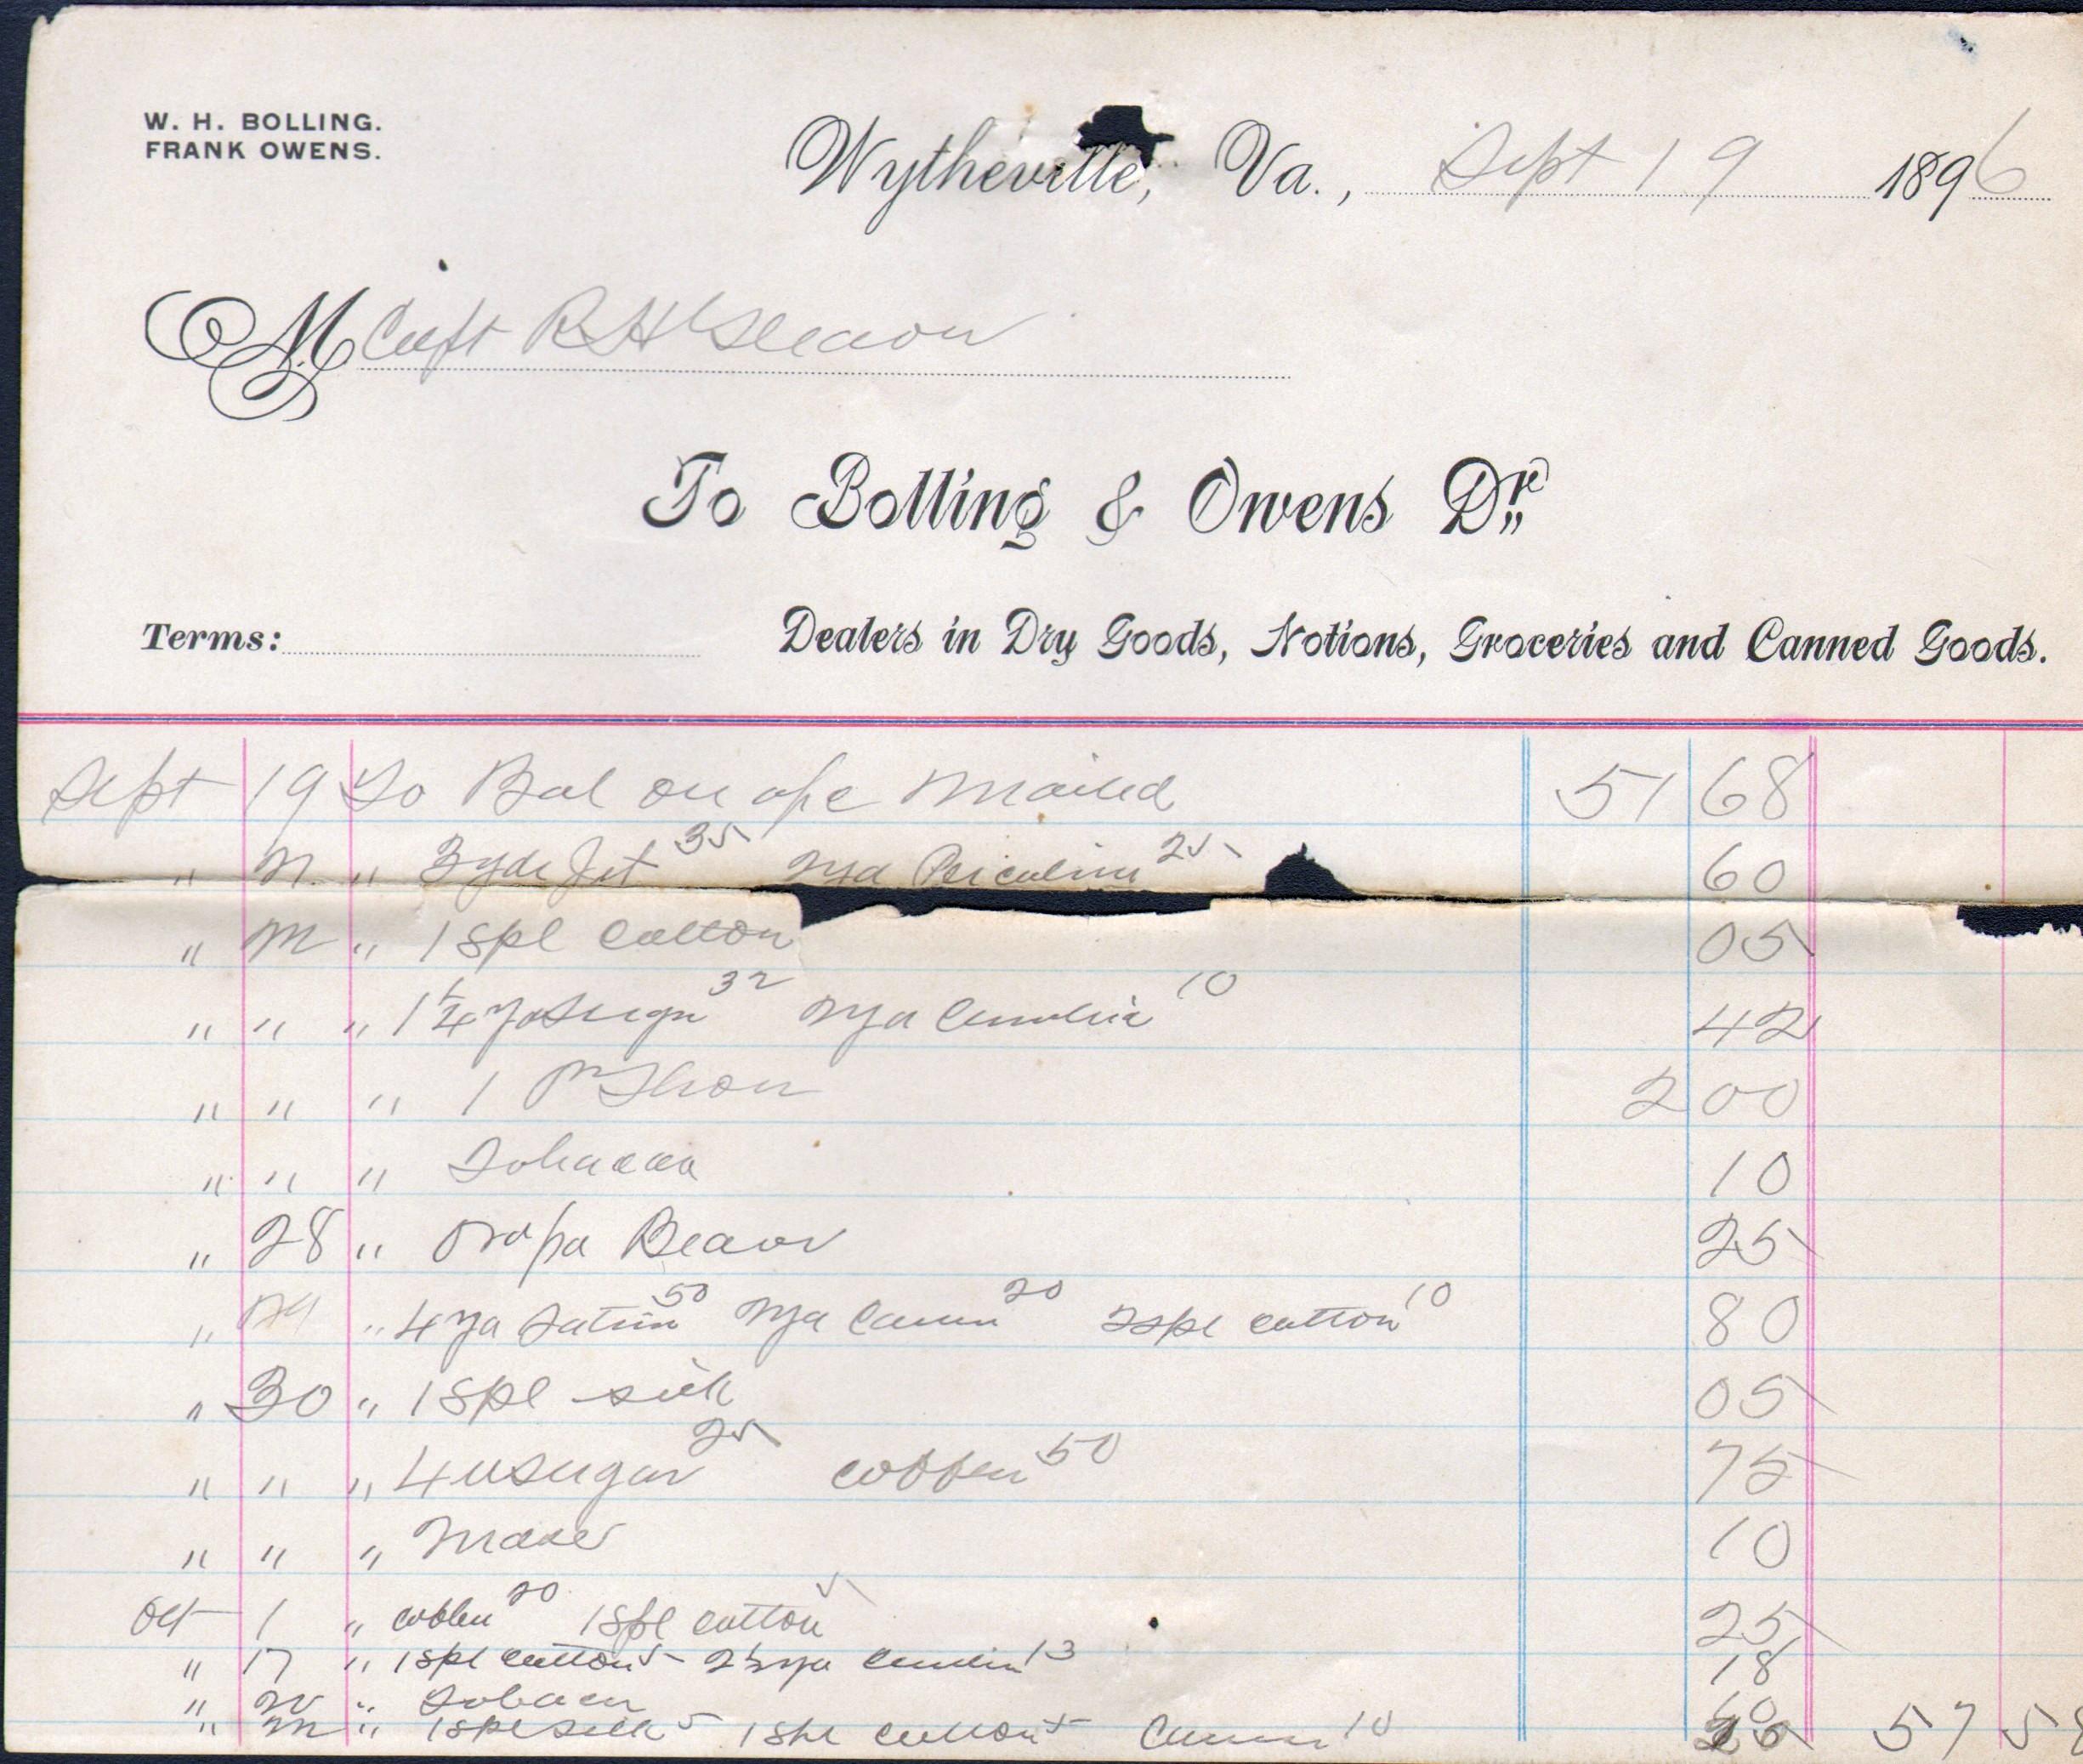 W. H. BOLLING.
FRANK OWENS.
Wytheville, Va., Sept 19 1896
M Capt R H Gleaon
To Bolling & Owens Dr.
Terms: Dealers in Dry Goods, Notions, Groceries and Canned Goods.
Sept 19 To Bal on a/c mailed 51 68
" " 3 yds Jet 35 25 60
" " 1 Spl cotton 05
" " " 1 1/4 yd 32 10 42
" " " 1 Pr Shoes 2 00
" " " Tobacco 10
" 28 " Beaver 25
" 29 " 4 yd Satin 50 20 2 spl cotton 10 80
" 30 " 1 spl silk 05
" " " 4 # sugar 25 coffee 50 75
" " " 10
Oct 1 " coffee 20 1 spl cotton 5 25
" 17 " 1 spl cotton 5 2 1/2 yd 13 18
" " Tobacco
" " 1 spl silk 5 1 spl cotton 5 10 57 58